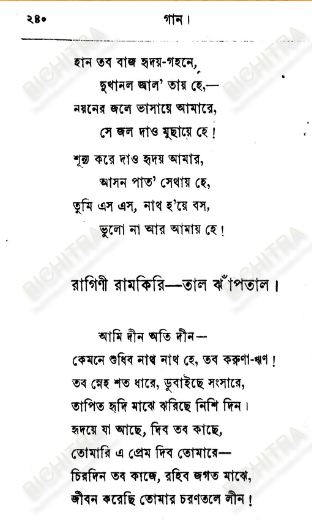 ২৪০ গান।
হান তব বাজ হৃদয়-গহনে,
দুখানল জ্বাল' তায় হে,—
নয়নের জলে ভাসায়ে আমারে,
সে জল দাও মুছায়ে হে!
শূন্য করে দাও হৃদয় আমার,
আসন পাত' সেথায় হে,
তুমি এস এস, নাথ হ'য়ে বস,
ভুলো না আর আমায় হে!
রাগিণী রামকিরি—তাল ঝাঁপতাল।
আমি দীন অতি দীন—
কেমনে শুধিব নাথ নাথ হে, তব করুণা-ঋণ!
তব স্নেহ শত ধারে, ডুবাইছে সংসারে,
তাপিত হৃদি মাঝে ঝরিছে নিশি দিন।
হৃদয়ে যা আছে, দিব তব কাছে,
তোমারি এ প্রেম দিব তোমারে—
চিরদিন তব কাজে, রহিব জগত মাঝে,
জীবন করেছি তোমার চরণতলে লীন!
BICHITRA
BICHITRA
BICHITRA
BICHITRA
BICHITRA
BICHITRA